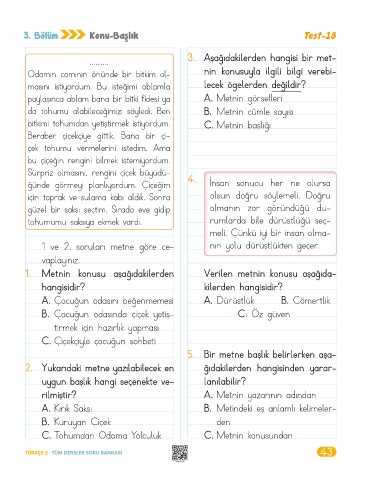 3. Bölüm Konu-Başlık
Test-18
..........
Odamın camının önünde bir bitkim ol-
masını istiyordum. Bu isteğimi ablamla
paylaşınca ablam bana bir bitki fidesi ya
da tohumu alabileceğimizi söyledi. Ben
bitkimi tohumdan yetiştirmek istiyordum.
Beraber çiçekçiye gittik. Bana bir çi-
çek tohumu vermelerini istedim. Ama
bu çiçeğin rengini bilmek istemiyordum.
Sürpriz olmasını, rengini çiçek büyüdü-
ğünde görmeyi planlıyordum. Çiçeğim
için toprak ve sulama kabı aldık. Sonra
güzel bir saksı seçtim. Sırada eve gidip
tohumumu saksıya ekmek vardı.
1 ve 2. soruları metne göre ce-
vaplayınız.
1. Metnin konusu aşağıdakilerden
hangisidir?
A. Çocuğun odasını beğenmemesi
B. Çocuğun odasında çiçek yetiş-
tirmek için hazırlık yapması
C. Çiçekçiyle çocuğun sohbeti
2. Yukarıdaki metne yazılabilecek en
uygun başlık hangi seçenekte ve-
rilmiştir?
A. Kırık Saksı
B. Kuruyan Çiçek
C. Tohumdan Odama Yolculuk
3. Aşağıdakilerden hangisi bir met-
nin konusuyla ilgili bilgi verebi-
lecek ögelerden değildir?
A. Metnin görselleri
B. Metnin cümle sayısı
C. Metnin başlığı
4. İnsan sonucu her ne olursa
olsun doğru söylemeli. Doğru
olmanın zor göründüğü du-
rumlarda bile dürüstlüğü seç-
meli. Çünkü iyi bir insan olma-
nın yolu dürüstlükten geçer.
Verilen metnin konusu aşağıda-
kilerden hangisidir?
A. Dürüstlük B. Cömertlik
C. Öz güven
5. Bir metne başlık belirlerken aşa-
ğıdakilerden hangisinden yarar-
lanılabilir?
A. Metnin yazarının adından
B. Metindeki eş anlamlı kelimeler-
den
C. Metnin konusundan
TÜRKÇE 2 TÜM DERSLER SORU BANKASI
43